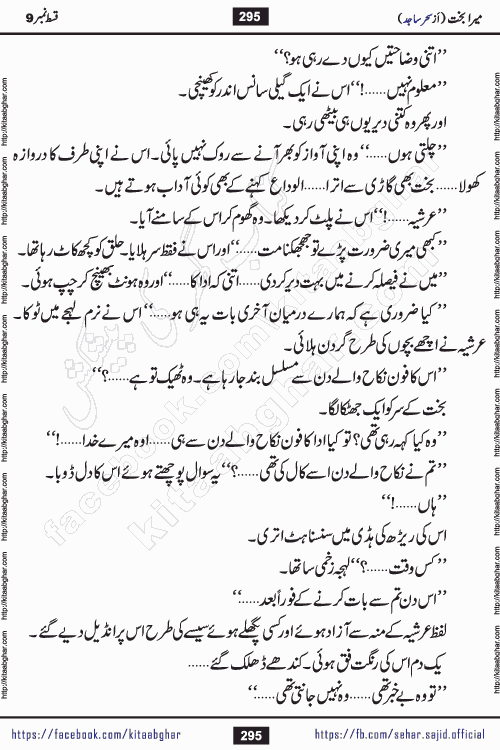 میرا بخت (از سحر ساجد)
295
قسط نمبر 9
’’اتنی وضاحتیں کیوں دے رہی ہو؟‘‘
’’معلوم نہیں……!‘‘ اس نے ایک گیلی سانس اندر کو کھینچی۔
اور پھر وہ کتنی دیر یوں ہی بیٹھی رہی۔
’’چلتی ہوں……‘‘ وہ اپنی آواز کو بھر آنے سے روک نہیں پائی۔ اس نے اپنی طرف کا دروازہ
کھولا……بخت بھی گاڑی سے اترا……الوداع کہنے کے بھی کوئی آداب ہوتے ہیں۔
’’عرشیہ……!‘‘ اس نے پلٹ کر دیکھا۔ وہ گھوم کر اس کے سامنے آیا۔
’’کبھی میری ضرورت پڑے تو جھجکنا مت……‘‘ اور اس نے فقط سر ہلایا۔ حلق کو کچھ کاٹ رہا تھا۔
’’میں نے فیصلہ کرنے میں بہت دیر کر دی……اتنی کہ ادا کا……‘‘ اور وہ ہونٹ بھینچ کر چپ ہوئی۔
’’کیا ضروری ہے کہ ہمارے درمیان آخری بات یہ ہی ہو……؟‘‘ اس نے نرم لہجے میں ٹوکا۔
عرشیہ نے اچھے بچوں کی طرح گردن ہلائی۔
’’اس کا فون نکاح والے دن سے مسلسل بند جا رہا ہے۔ وہ ٹھیک تو ہے……؟‘‘
بخت کے سر کو ایک جھٹکا لگا۔
’’وہ کیا کہہ رہی تھی؟ تو کیا ادا کا فون نکاح والے دن سے ہی……اوہ میرے خدا……!‘‘
’’تم نے نکاح والے دن اسے کال کی تھی……؟‘‘ یہ سوال پوچھتے ہوئے اس کا دل ڈوبا۔
’’ہاں……!‘‘
اس کی ریڑھ کی ہڈی میں سنسناہٹ اتری۔
’’کس وقت……؟‘‘ لہجہ زخمی سا تھا۔
’’اس دن تم سے بات کرنے کے فوراً بعد……‘‘
لفظ عرشیہ کے منہ سے آزاد ہوئے اور کسی پگھلے ہوئے سیسے کی طرح اس پر انڈیل دیے گئے۔
یک دم اس کی رنگت فق ہوئی۔ کندھے ڈھلک گئے……
’’تو وہ بے خبر تھی……وہ نہیں جانتی تھی……‘‘
https://facebook.com/kitaabghar
295
https://fb.com/sahar.sajid.official
http://kitaabghar.com
kitaabghar.com
facebook.com/kitaabghar
کتاب گھر کی پیشکش